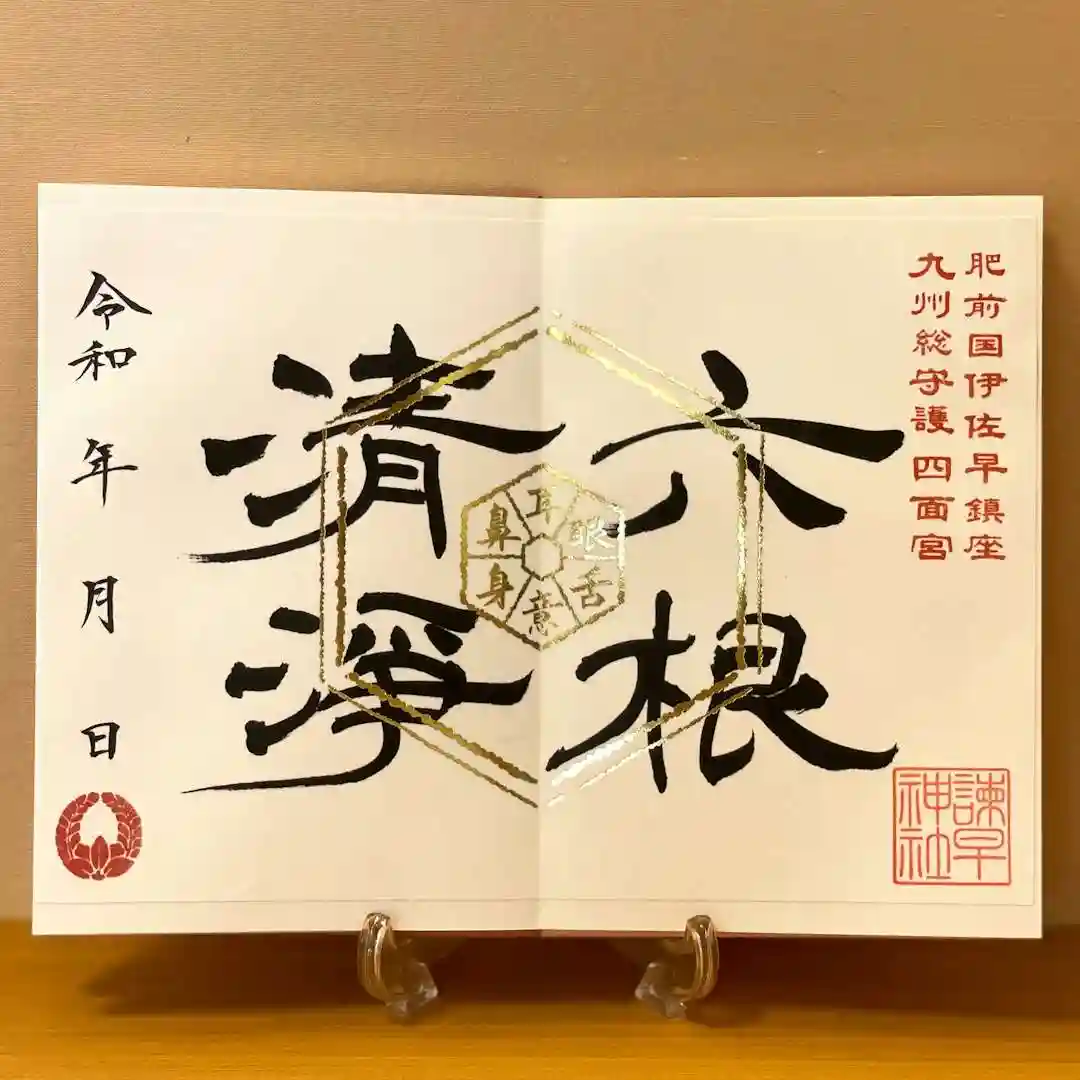 肥前国伊佐早鎮座
九州総守護 四面宮
六根
清浄
眼
耳
鼻
舌
身
意
令和 年 月 日
諫早
神社